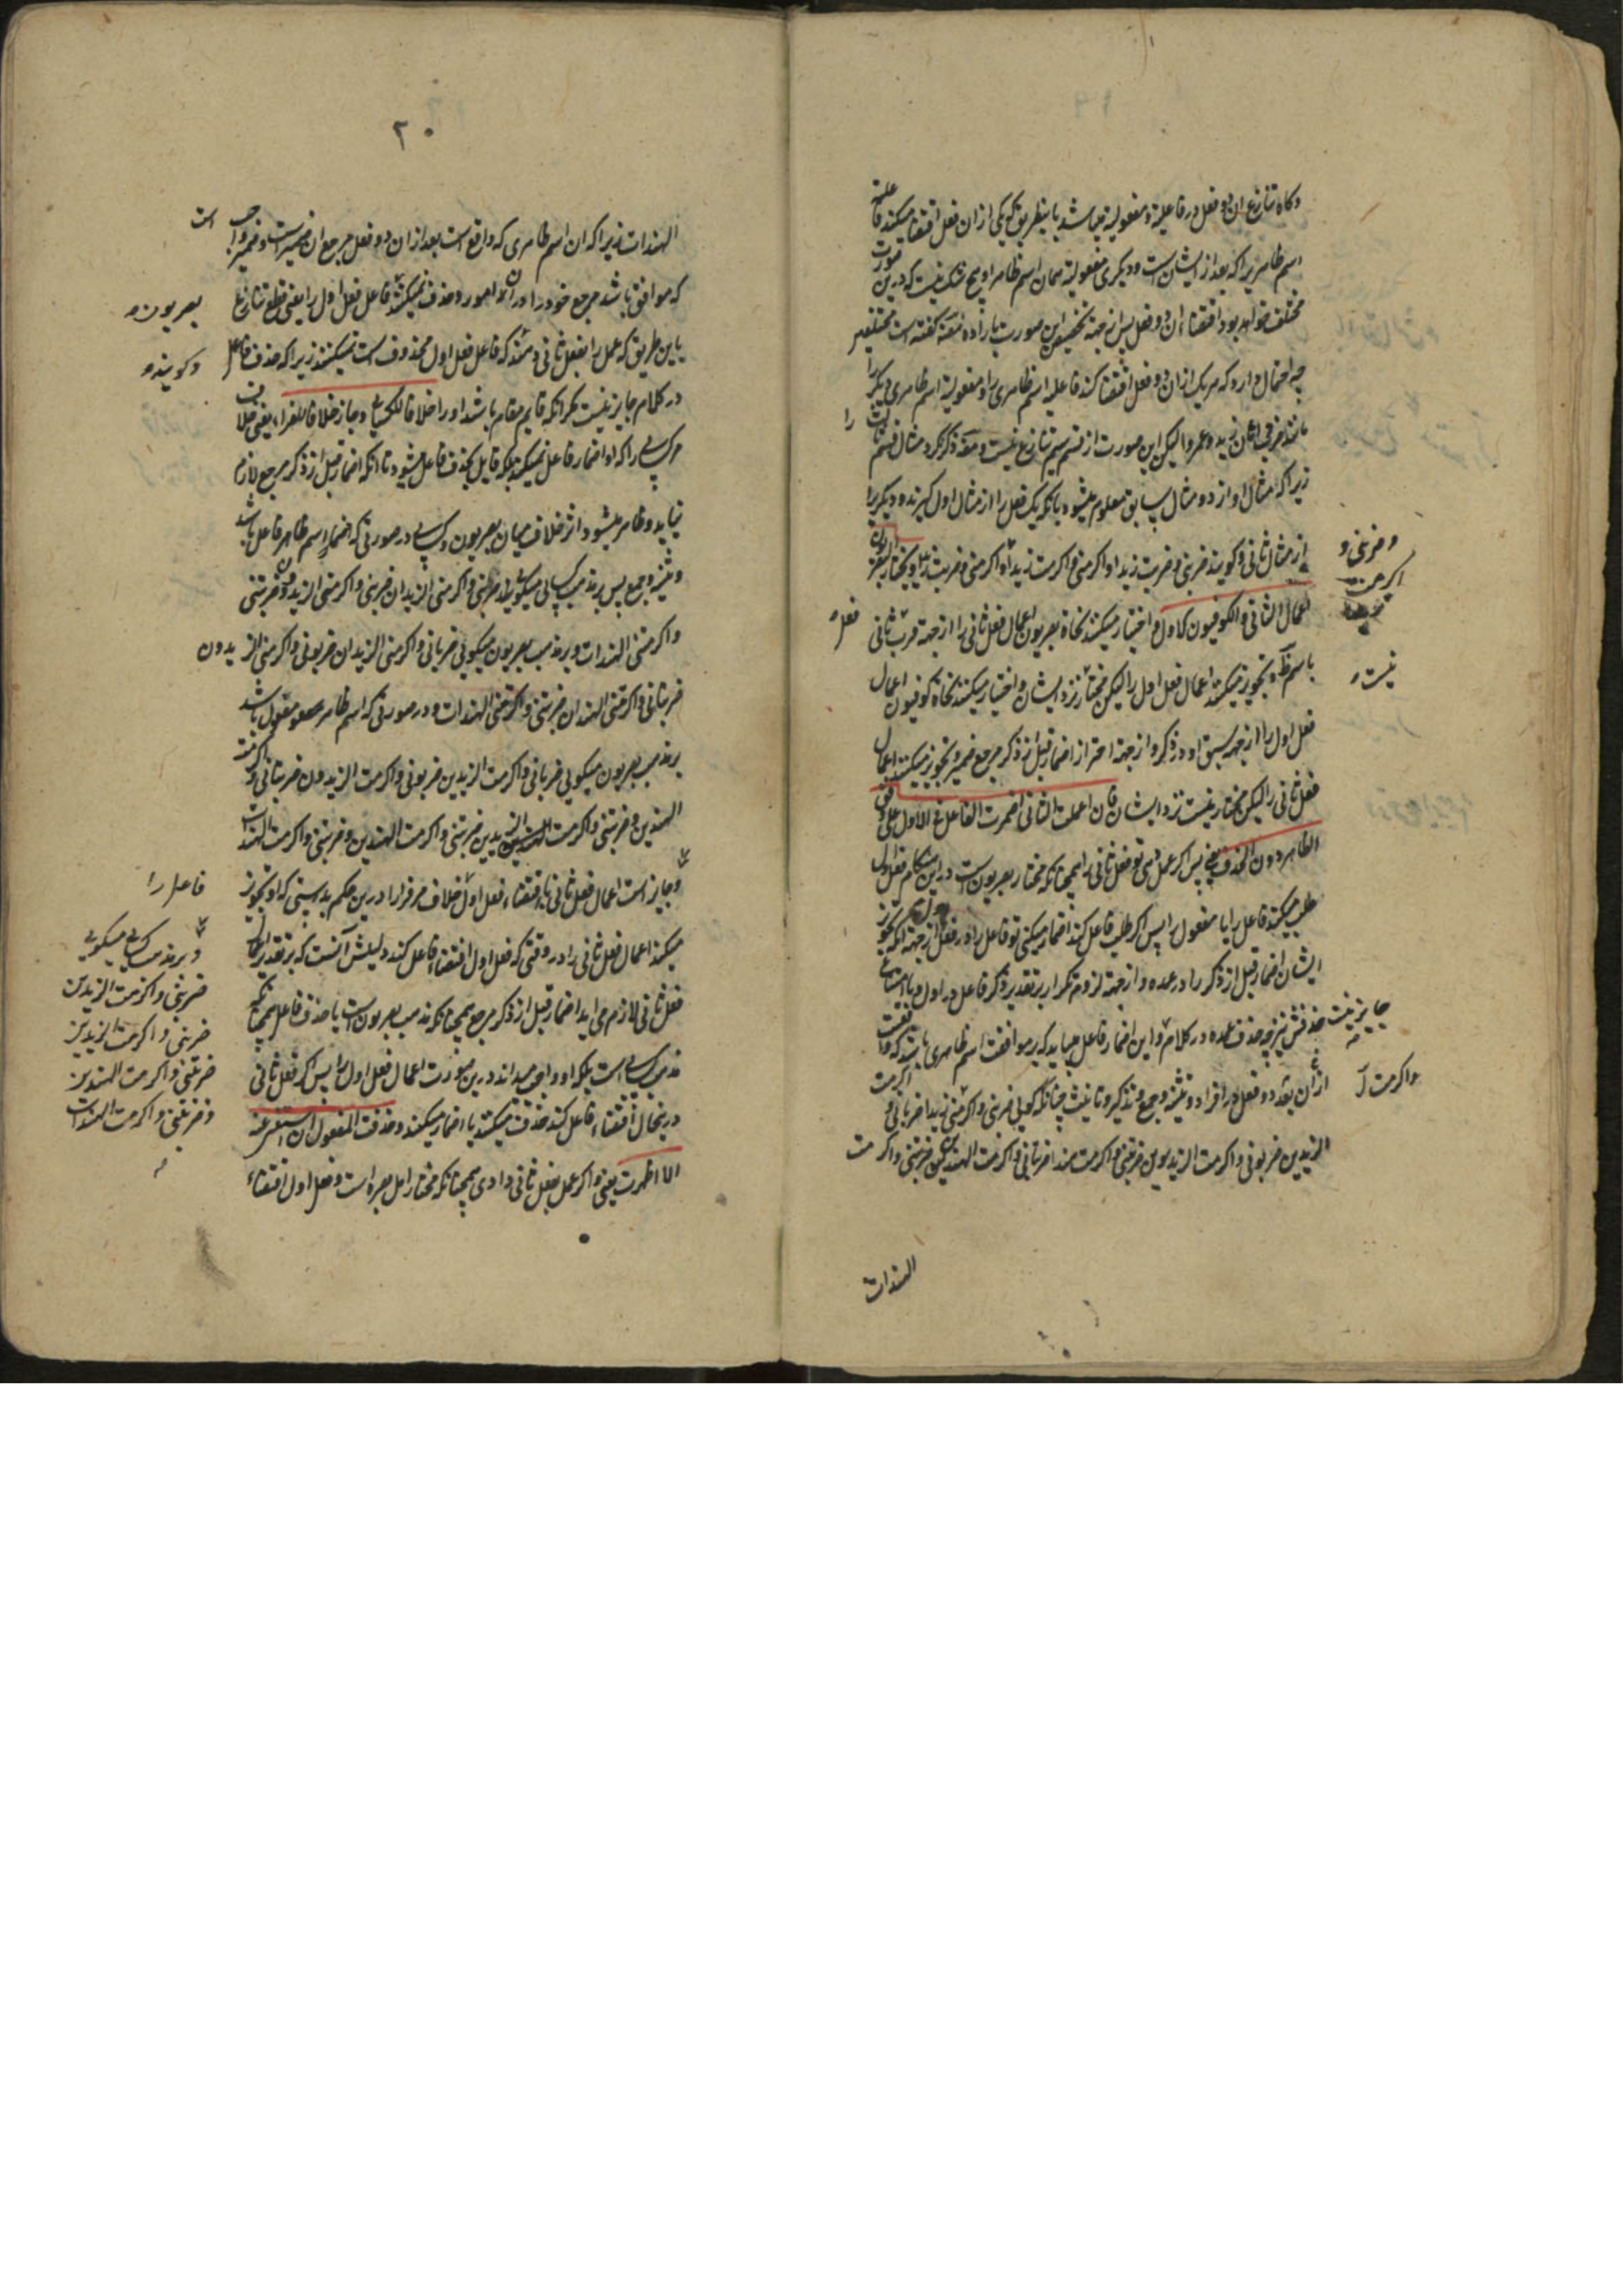 و گاه تنازع این دو فعل در فاعلیة و مفعولیة میباشد باینطریق که یکی از آن فعل اقتضا میکند فاعلیة
اسم ظاهریرا که بعد از ایشان است و دیگری مفعولیة همان اسم ظاهر را و هیچ شک نیست که درین صورت
مختلف خواهد بود اقتضاء آن دو فعل پس از جهة تخصیص این صورت باراده گفته است مختلفین
چه احتمال دارد که هر یک از آن دو فعل اقتضا کند فاعلیه اسم ظاهری را و مفعولیة اسم ظاهری دیگر را
مانند ضرب اهان زید عمروا لیکن این صورت از قسم تنازع نیست و مصنف ذکر نکرد مثال قسم ثالث را
زیرا که مثال او از دو مثال سابق معلوم میشود بانکه یک فعل را از مثال اول گیرند و دیگر را
از مثال ثانی و گویند ضربنی و ضربت زیدا و اکرمنی و اکرمت زیدا و اکرمنی و ضربت زیدا و یختار البصریون
و ضربنی و
اکرمت
اعمال الثانی و الکوفیون الاول و اختیار میکنند نحاة بصریون اعمال فعل ثانی را از جهة قرب ثانی
فعل
باسم ظ و تجویز میکنند اعمال فعل اول را لیکن مختار نزد ایشان و اختیار میکنند نحاة کوفیون اعمال
نیست
فعل اول را از جهه سبق او در ذکر و از جهة احتراز اضمار قبل از ذکر مرجع ضمیر و تجویز میکنند اعمال
فعل ثانی را لیکن مختار نیست نزد ایشان فان اعملت الثانی اضمرت الفاعل فی الاول علی وفق
الظاهر دون الحذف یعنی پس اگر عمل دهی تو فعل ثانی را همچنانکه مختار بصریون است در این هنگام فعل اول
طلب میکند فاعل را یا مفعول را پس اگر طلب فاعل کند اضمار میکنی تو فاعل را در فعل اول از جهة آنکه تجویز
ایشان اضمار قبل از ذکر را در عمده و از جهة لزوم تکرار بر تقدیر ذکر فاعل در اول و
جایز نیست حذفش نیز چه حذف عمده در کلام و این اضمار فاعل میباید که بر موافقت اسم ظاهری باشد که واقعست
از آن بعد دو فعل در افراد و تثنیه و جمع و تذکیر و تانیث چنانکه گویی ضربنی و اکرمنی زیدا ضربانی و اکرمت
واکرمت
الزیدین ضربونی و اکرمت الزیدین ضربتنی و اکرمت هندا ضربتانی و اکرمت الهندین ضربننی و اکرمت
الهندات
۲۰
الهندات زیرا که آن اسم ظاهری که واقع است بعد از آن دو فعل مرجع آن ضمیر است و ضمیر واجب است
که موافق باشد مرجع خود را در آن امور و حذف نمیکنند فاعل فعل اول را یعنی قطع تنازع
بصریون
باین طریق که عمل را بفعل ثانی دهند که فاعل فعل اول محذوف است نمیکنند زیرا که حذف فاعل
و گویند
در کلام جایز نیست مگر آنکه قایم مقام باشد او را خلافا للکسایی و جاز خلافا للفراء یعنی خلاف
مر کسایی را که او اضمار فاعل نمیکند بلکه قایل بحذف فاعل میشود تا آنکه اضمار قبل از ذکر مرجع لازم
نیاید و ظاهر میشود اثر خلاف میان بصریون و کسایی در صورتی که اضمار اسم ظاهر فاعل باشد
و تثنیه و جمع پس بر مذهب کسایی میگویی ضربنی و اکرمنی الزیدان ضربنی و اکرمنی الزیدون ضربتنی
و اکرمتنی الهندات و بر مذهب بصریون میگویی ضربانی و اکرمنی الزیدان ضربونی و اکرمنی الزیدون
ضربتانی و اکرمتنی الهندان ضربننی و اکرمتنی الهندات و در صورتی که اسم ظاهر مفعول باشد
بر مذهب بصریون میگویی ضربانی و اکرمت الزیدین ضربونی و اکرمت الزیدون ضربتانی و اکرمت
الهندین و ضربننی و اکرمت الزیدین ضربتنی و اکرمت الهندین و ضربتنی و اکرمت الهندات
و جایز است اعمال فعل ثانی با اقتضاء فعل اول خلاف مر فرا را درین حکم بدرستی که او تجویز
فاعل را
میکند اعمال فعل ثانی را در وقتی که فعل اول اقتضاء فاعل کند دلیلش آنست که بر تقدیر اعمال
فعل ثانی لازم می آید اضمار قبل از ذکر مرجع همچنانکه مذهب بصریون است یا حذف فاعل همچنانکه
مذهب کسایی است بلکه او واجب میداند درین صورت اعمال فعل اول را پس اگر فعل ثانی
درینحال اقتضاء فاعل کند حذف میکنند یا اضمار میکنند و حذفت المفعول ان استغنی عنه
الا اظهرت یعنی و اگر عمل بفعل ثانی دادی همچنانکه مختار اهل بصره است و فعل اول اقتضاء
و بر مذهب کسایی میگویی
ضربنی و اکرمت الزیدین
ضربنی و اکرمت الزیدین
ضربتنی و اکرمت الهندین
و ضربتنی و اکرمت الهندات